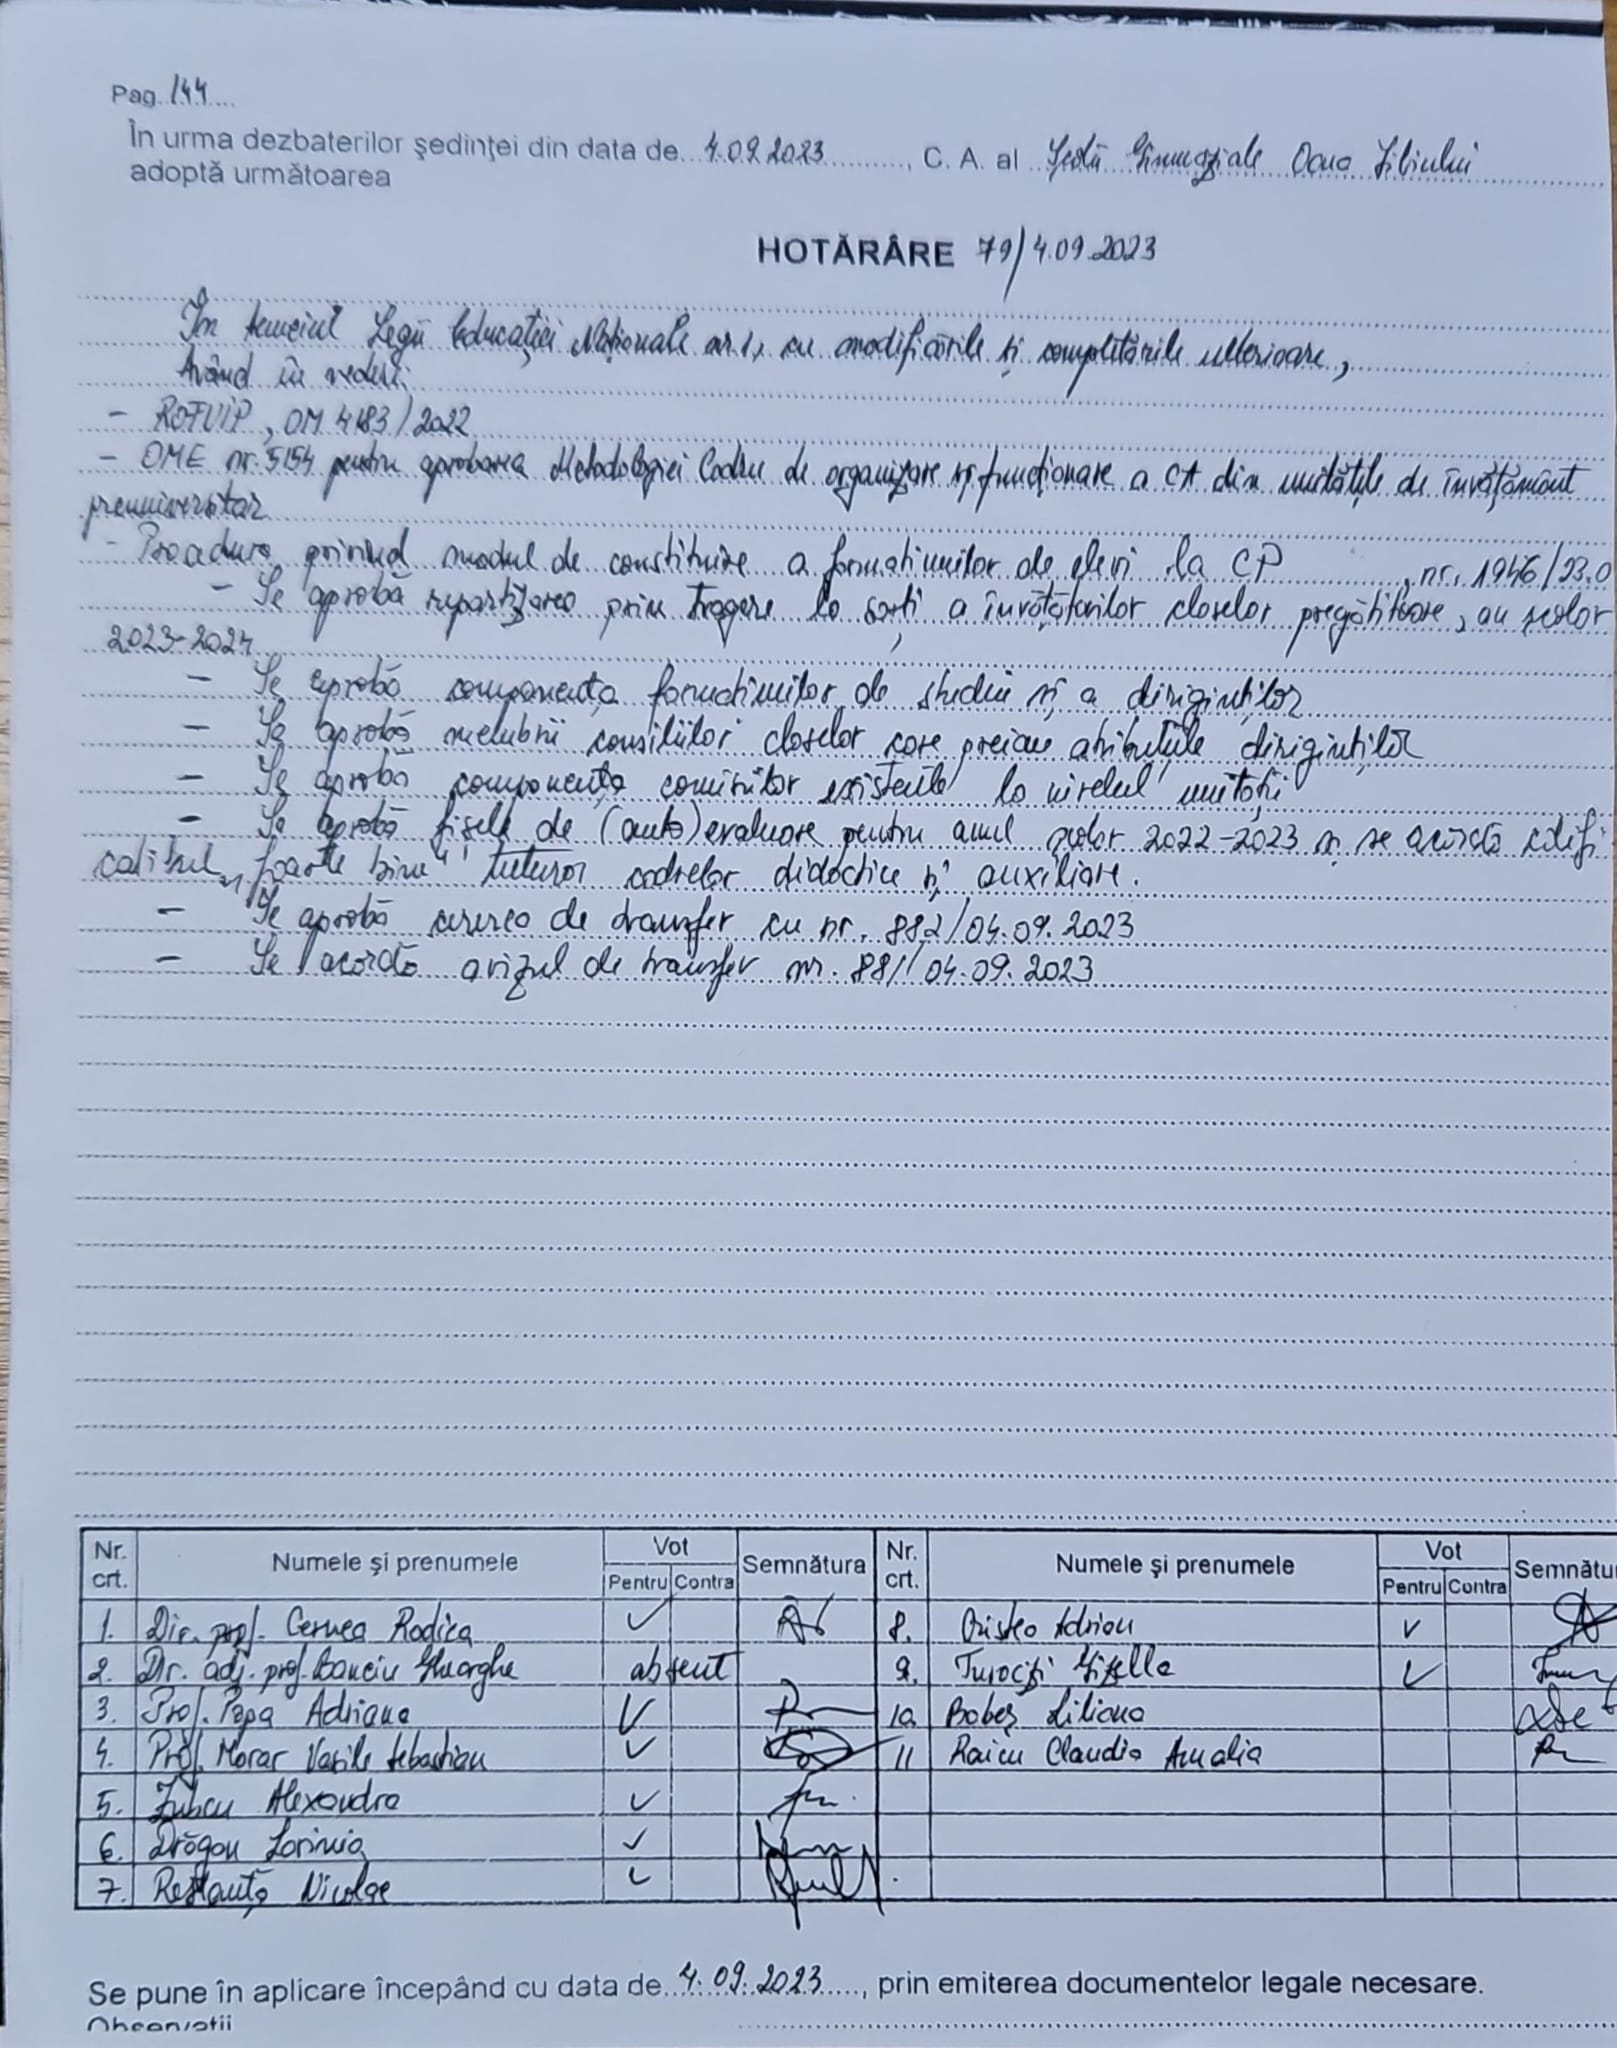 Pag. 144
În urma dezbaterilor şedinţei din data de 4.09.2023, C. A. al Școlii Gimnaziale Ocna Sibiului
adoptă următoarea
HOTĂRÂRE 79/4.09.2023
În temeiul Legii Educației Naționale nr. 1, cu modificările și completările ulterioare,
Având în vedere:
- ROFUIP, OM 4183/2022
- OME nr. 5154 pentru aprobarea Metodologiei Cadru de organizare și funcționare a CA din unitățile de învățământ
preuniversitar
- Procedura privind modul de constituire a formațiunilor de elevi la CP, nr. 1946/23.0
- Se aprobă repartizarea prin tragere la sorți a învățătorilor claselor pregătitoare, an școlar
2023-2024
- Se aprobă componența formațiunilor de studiu și a diriginților
- Se aprobă membrii consiliilor claselor care preiau atribuțiile diriginților
- Se aprobă componența comisiilor existente la nivelul unității
- Se aprobă fișele de (auto)evaluare pentru anul școlar 2022-2023 și se acordă califi
cativul „foarte bine" tuturor cadrelor didactice și auxiliare.
- Se aprobă cererea de transfer cu nr. 882/04.09.2023
- Se acordă avizul de transfer nr. 881/04.09.2023
Nr. crt. Numele şi prenumele Vot Pentru Contra Semnătura Nr. crt. Numele şi prenumele Vot Pentru Contra Semnătu
1. Dir. prof. Cernea Rodica 8. Cristea Adrian
2. Dir. adj. prof. Banciu Gheorghe absent 9. Gizella
3. Prof. Popa Adriana 10 Bobeș Liliana
4. Prof. Morar Vasile Sebastian 11 Raicu Claudia Amalia
5. Alexandra
6. Drăgan Lavinia
7. Restanță Nicolae
Se pune în aplicare începând cu data de 4.09.2023, prin emiterea documentelor legale necesare.
Observaţii